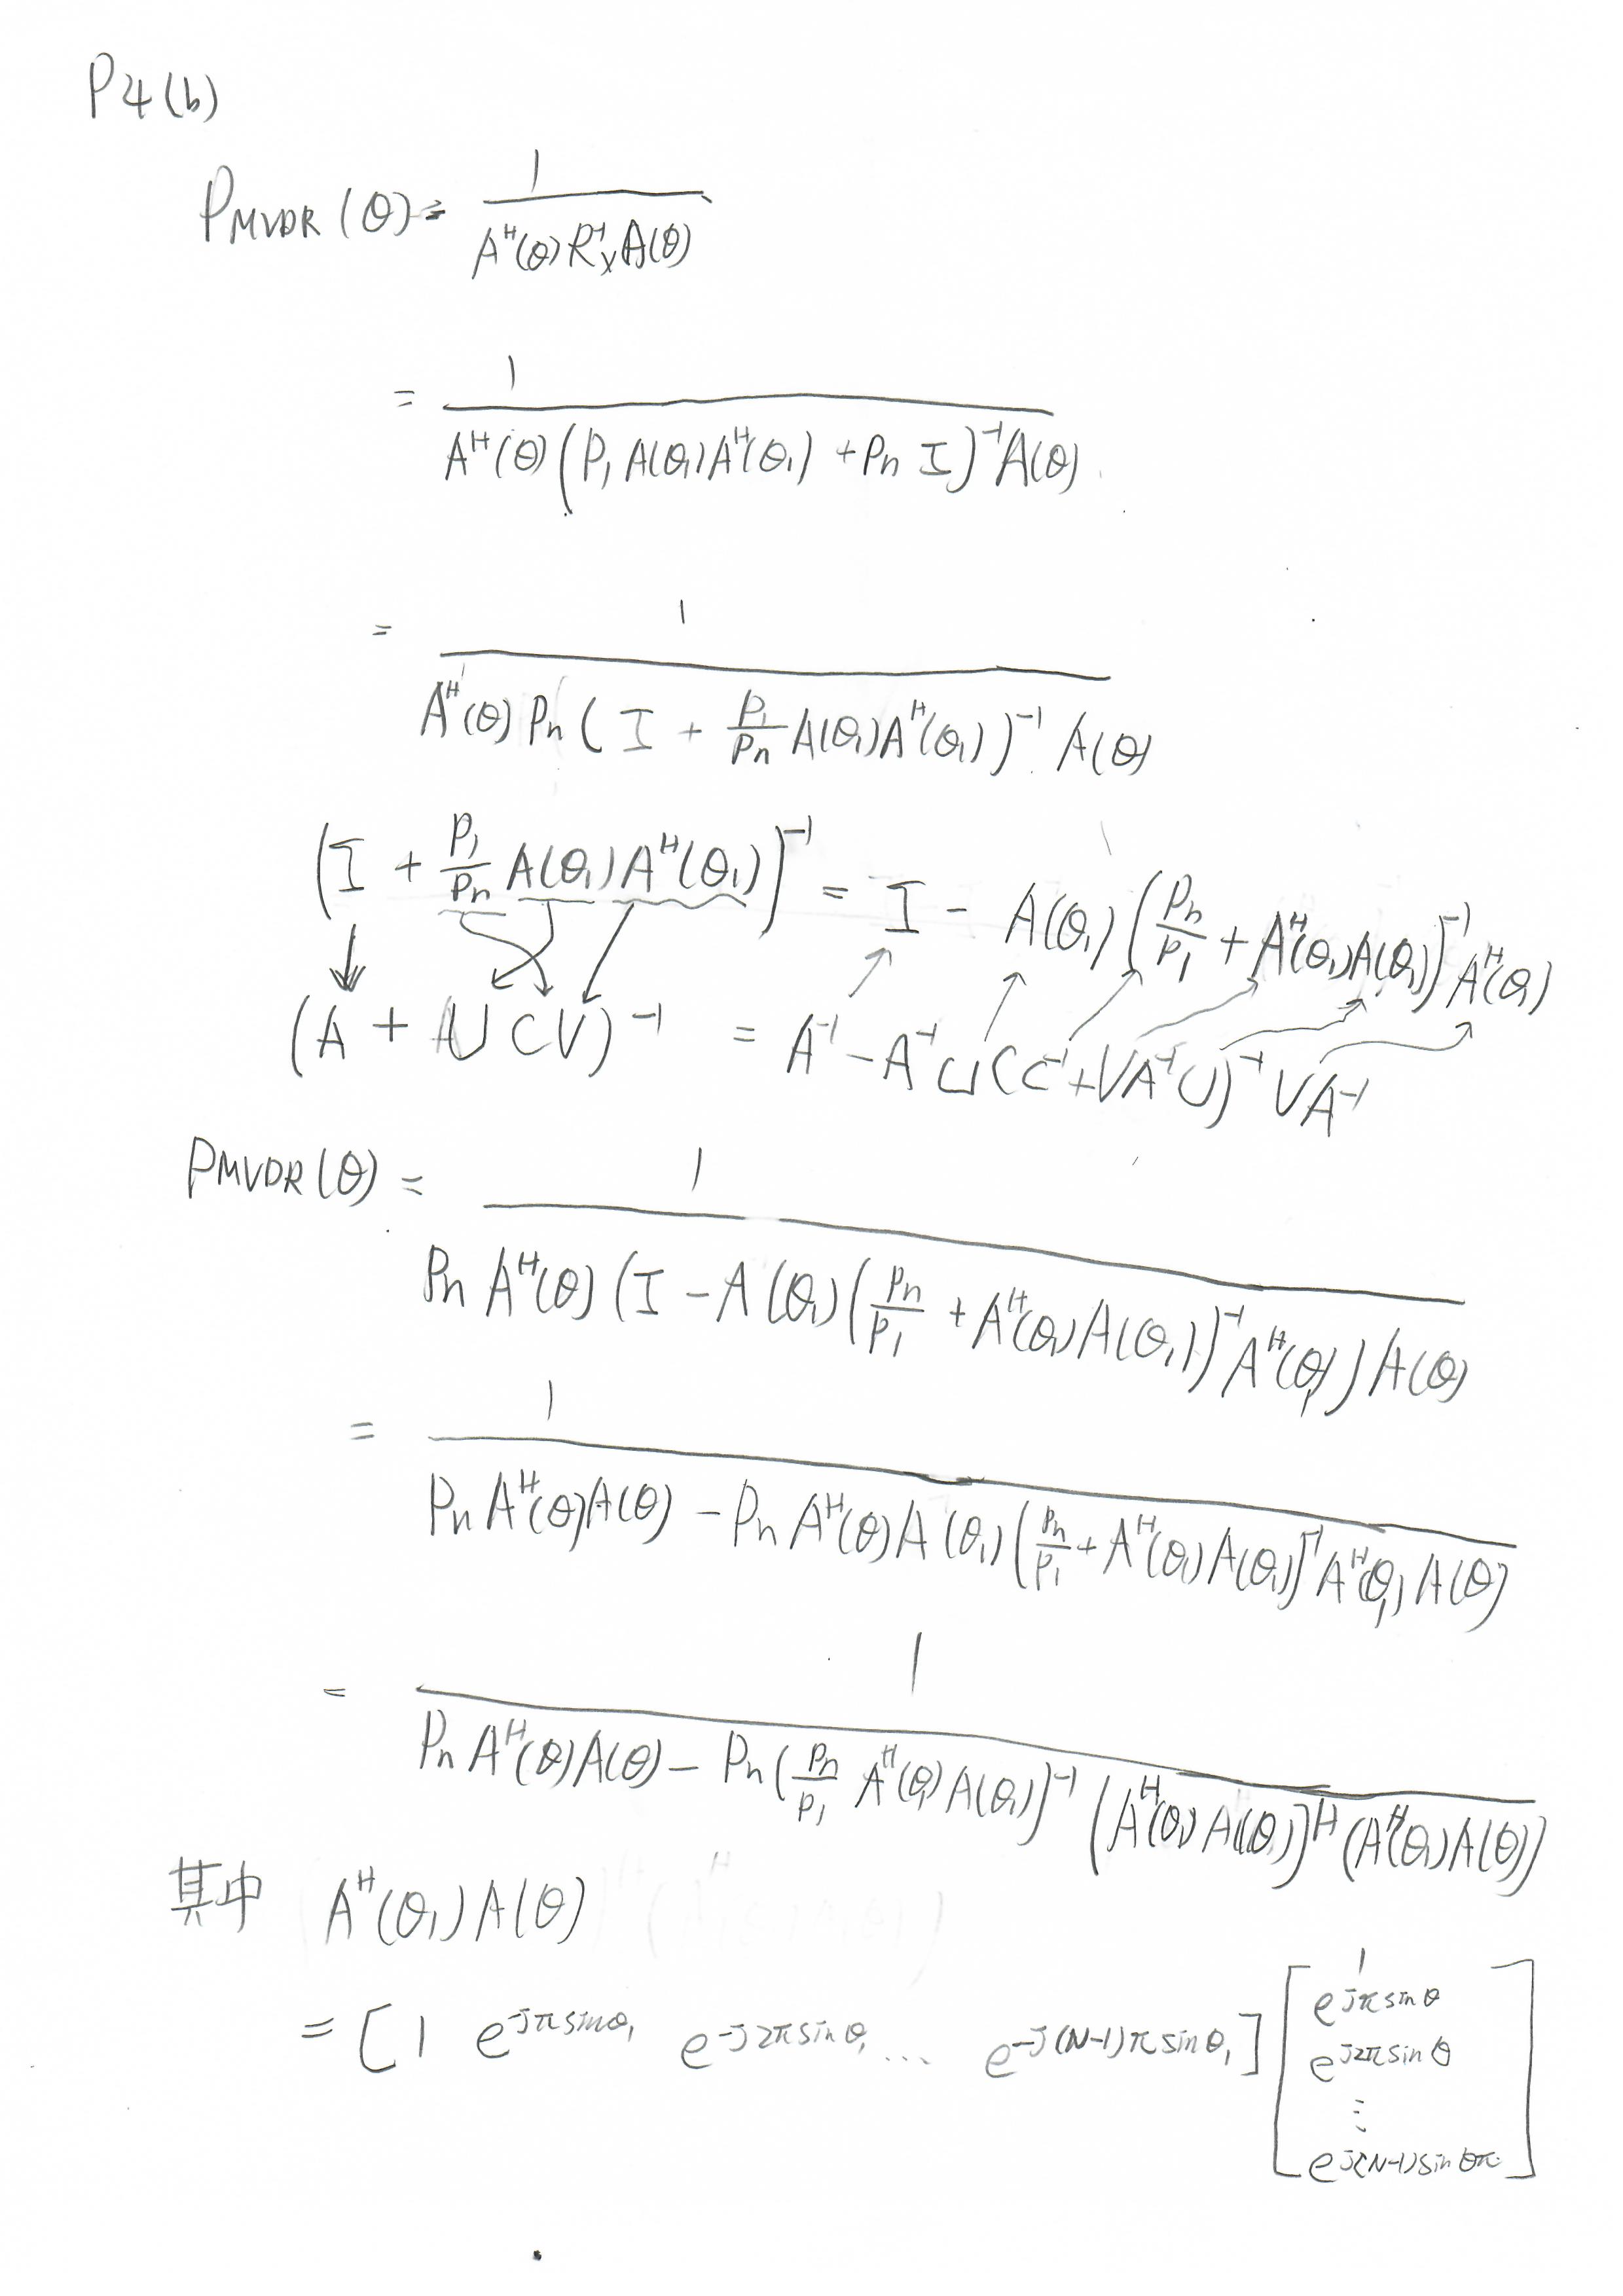 P4(b)
P_MVDR(θ) = 1 / (A^H(θ) R_x^{-1} A(θ))
= 1 / (A^H(θ) (P_1 A(θ_1) A^H(θ_1) + P_n I)^{-1} A(θ))
= 1 / (A^H(θ) P_n (I + P_1/P_n A(θ_1) A^H(θ_1))^{-1} A(θ))
(I + P_1/P_n A(θ_1) A^H(θ_1))^{-1} = I - A(θ_1) (P_n/P_1 + A^H(θ_1) A(θ_1))^{-1} A^H(θ_1)
(A + UCV)^{-1} = A^{-1} - A^{-1} U (C^{-1} + V A^{-1} U)^{-1} V A^{-1}
P_MVDR(θ) = 1 / (P_n A^H(θ) (I - A(θ_1) (P_n/P_1 + A^H(θ_1) A(θ_1))^{-1} A^H(θ_1)) A(θ))
= 1 / (P_n A^H(θ) A(θ) - P_n A^H(θ) A(θ_1) (P_n/P_1 + A^H(θ_1) A(θ_1))^{-1} A^H(θ_1) A(θ))
= 1 / (P_n A^H(θ) A(θ) - P_n (P_n/P_1 A^H(θ_1) A(θ_1))^{-1} (A^H(θ_1) A(θ))^H (A^H(θ_1) A(θ)))
其中 A^H(θ_1) A(θ)
= [1 e^{-jπsinθ_1} e^{-j2πsinθ_1} ... e^{-j(N-1)πsinθ_1}] [1 e^{jπsinθ} e^{j2πsinθ} ⋮ e^{j(N-1)sinθπ}]